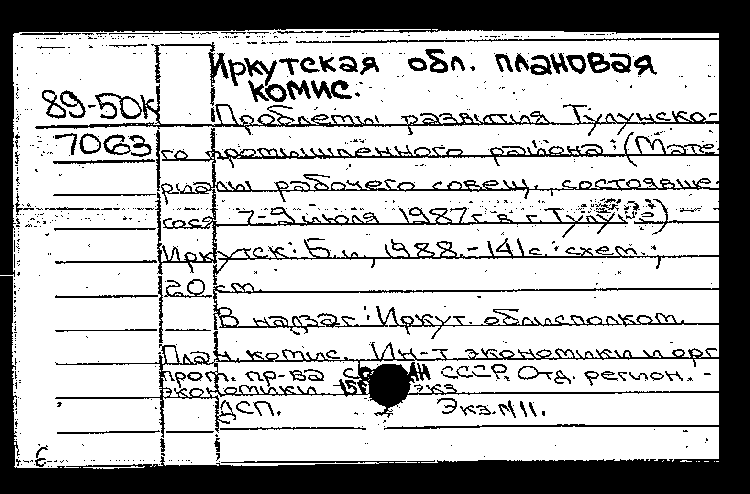 Иркутская обл. плановая
комис.
89-50к
7063
Проблемы развития Тулунско-
го промышленного района: (Мате
риалы рабочего совещ., состоявше-
гося 7-9 июля 1987г. в г. Тулуне) -
Иркутск: Б.и., 1988. - 141с.: схем.;
20 см.
В надзаг.: Иркут. облисполком.
План. комис. Ин-т экономики и орг
пром. пр-ва СО АН СССР. Отд. регион. -
экономики. экз
ДСП. Экз. №11.
6